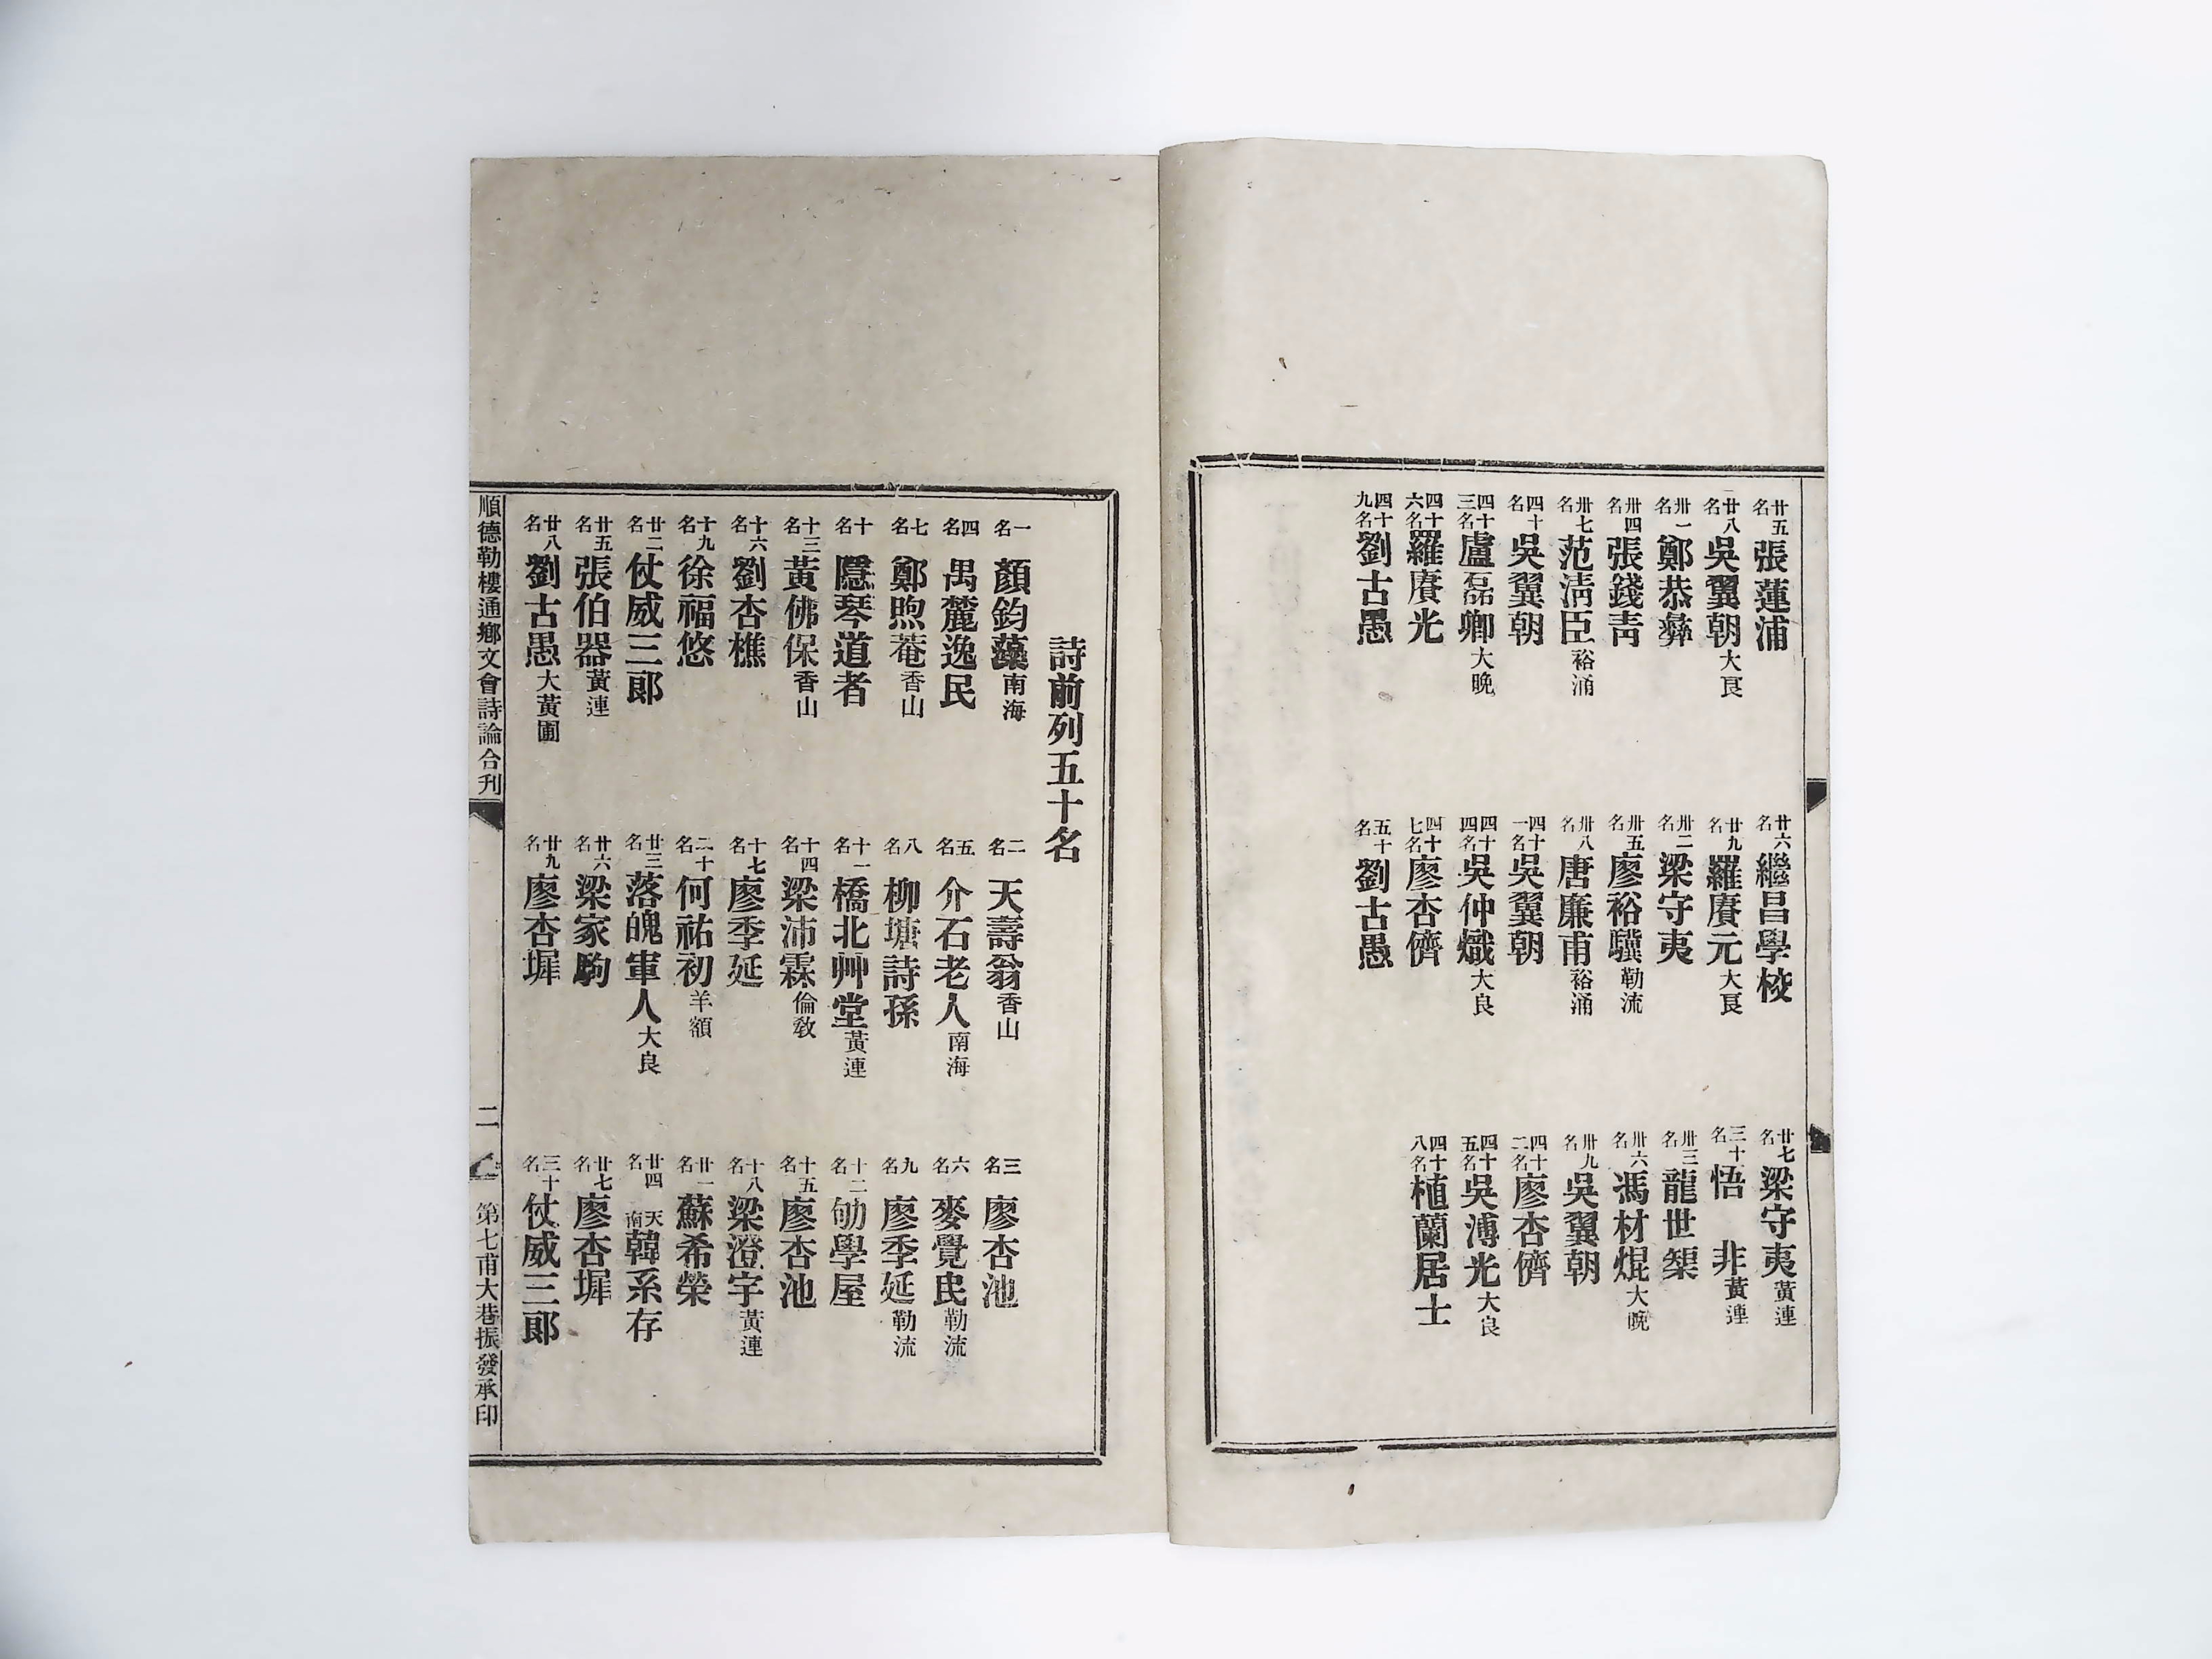 廿五名 張蓮浦
廿六名 繼昌學校
廿七名 梁守夷 黃連
廿八名 吳翼朝 大良
廿九名 羅賡元 大良
三十名 悟非 黃連
卅一名 鄭恭彝
卅二名 梁守夷
卅三名 龍世
卅四名 張錢青
卅五名 廖裕驥 勒流
卅六名 馮材焜 大晚
卅七名 范清臣 裕涌
卅八名 唐廉甫 裕涌
卅九名 吳翼朝
四十名 吳翼朝
四十一名 吳翼朝
四十二名 廖杏儕
四十三名 盧磊卿 大晚
四十四名 吳仲熾 大良
四十五名 吳溥光 大良
四十六名 羅賡光
四十七名 廖杏儕
四十八名 植蘭居士
四十九名 劉古愚
五十名 劉古愚
詩前列五十名
一名 顏鈞藻 南海
二名 天壽翁 香山
三名 廖杏池
四名 禺麓逸民
五名 介石老人 南海
六名 麥覺民 勒流
七名 鄭煦菴 香山
八名 柳塘詩孫
九名 廖季延 勒流
十名 隱琴道者
十一名 橋北艸堂 黃連
十二名 劬學屋
十三名 黃佛保 香山
十四名 梁沛霖 倫教
十五名 廖杏池
十六名 劉杏樵
十七名 廖季延
十八名 梁澄宇 黃連
十九名 徐福悠
二十名 何祐初 羊額
廿一名 蘇希榮
廿二名 仗威三郎
廿三名 落魄軍人 大良
廿四名 天南韓系存
廿五名 張伯器 黃連
廿六名 梁家駒
廿七名 廖杏墀
廿八名 劉古愚 大黃圃
廿九名 廖杏墀
三十名 仗威三郎
順德勒樓通鄉文會詩論合刊
二
第七甫大巷振發承印